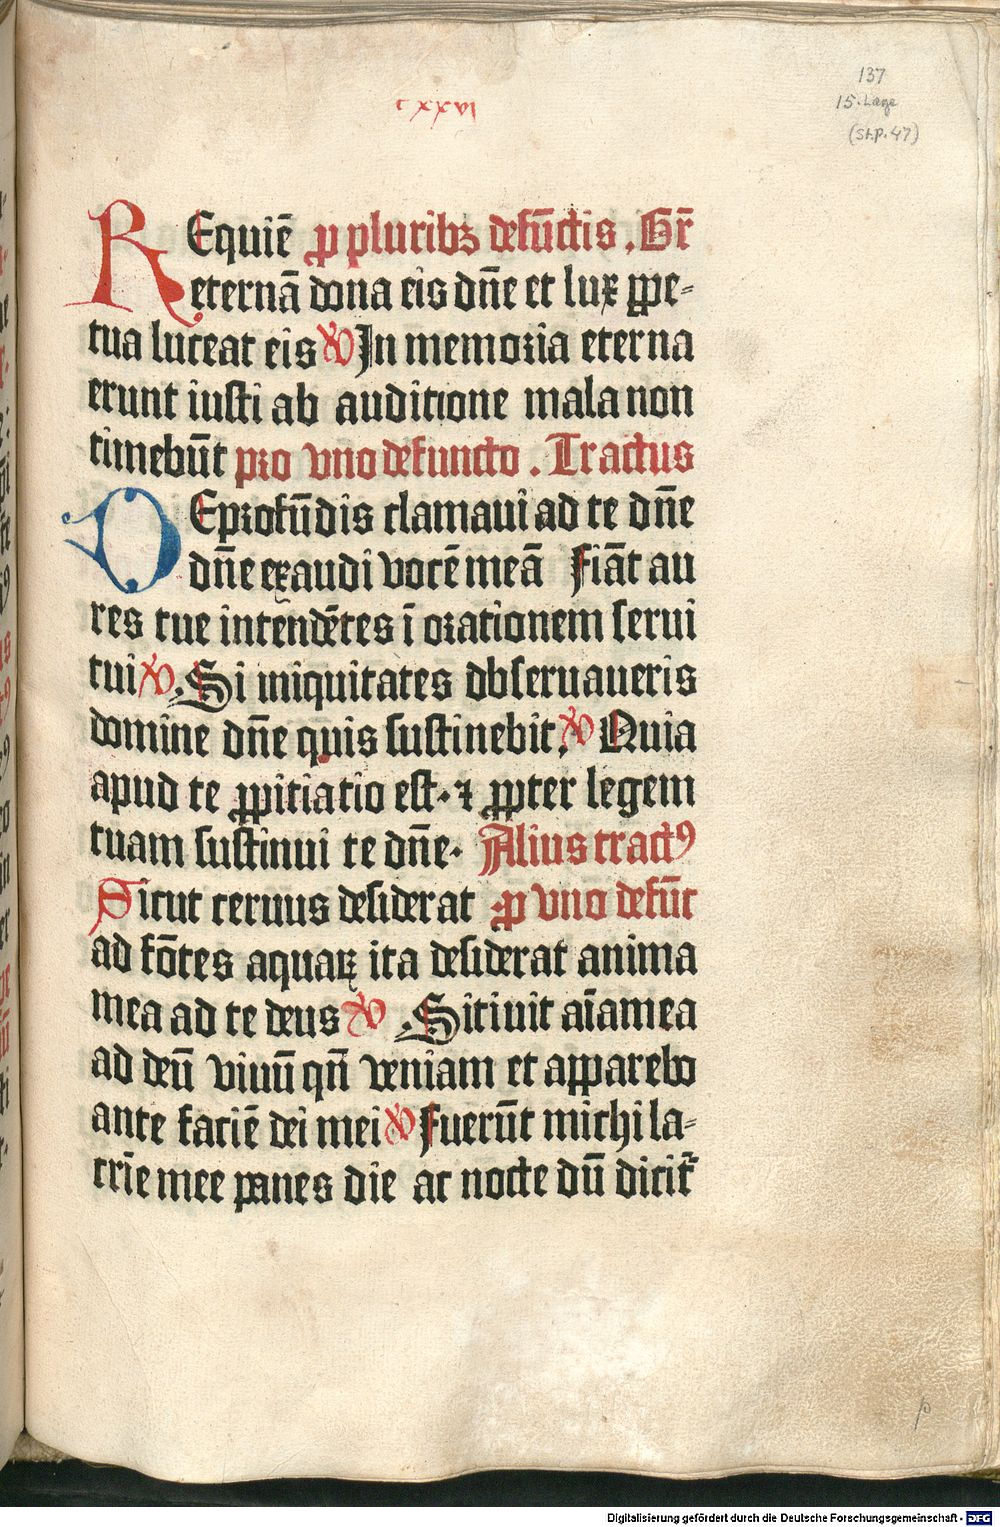 cxxvi
137
15. Lage
(St.p. 47)
REquiē ꝓ pluribꝫ defūctis . Gr̄
eternā dona eis dn̄e et lux ꝑpe-
tua luceat eis ℣ In memoria eterna
erunt iusti ab auditione mala non
timebūt pro vno defuncto . Tractus
DEprofūdis clamaui ad te dn̄e
dn̄e exaudi vocē meā Fiāt au
res tue intendētes ī orationem serui
tui ℣ . Si iniquitates obseruaueris
domine dn̄e quis sustinebit . ℣ Quia
apud te ꝓpitiatio est . ⁊ ꝓpter legem
tuam sustinui te dn̄e . Alius tractꝰ
Sicut ceruus desiderat . ꝓ vno defūct
ad fōtes aquaꝝ ita desiderat anima
mea ad te deus ℣ . Sitiuit aīa mea
ad deū viuū qn̄ veniam et apparebo
ante faciē dei mei ℣ Fuerūt michi la-
crīe mee panes die ac nocte dū dicit̄
Digitalisierung gefördert durch die Deutsche Forschungsgemeinschaft - DFG